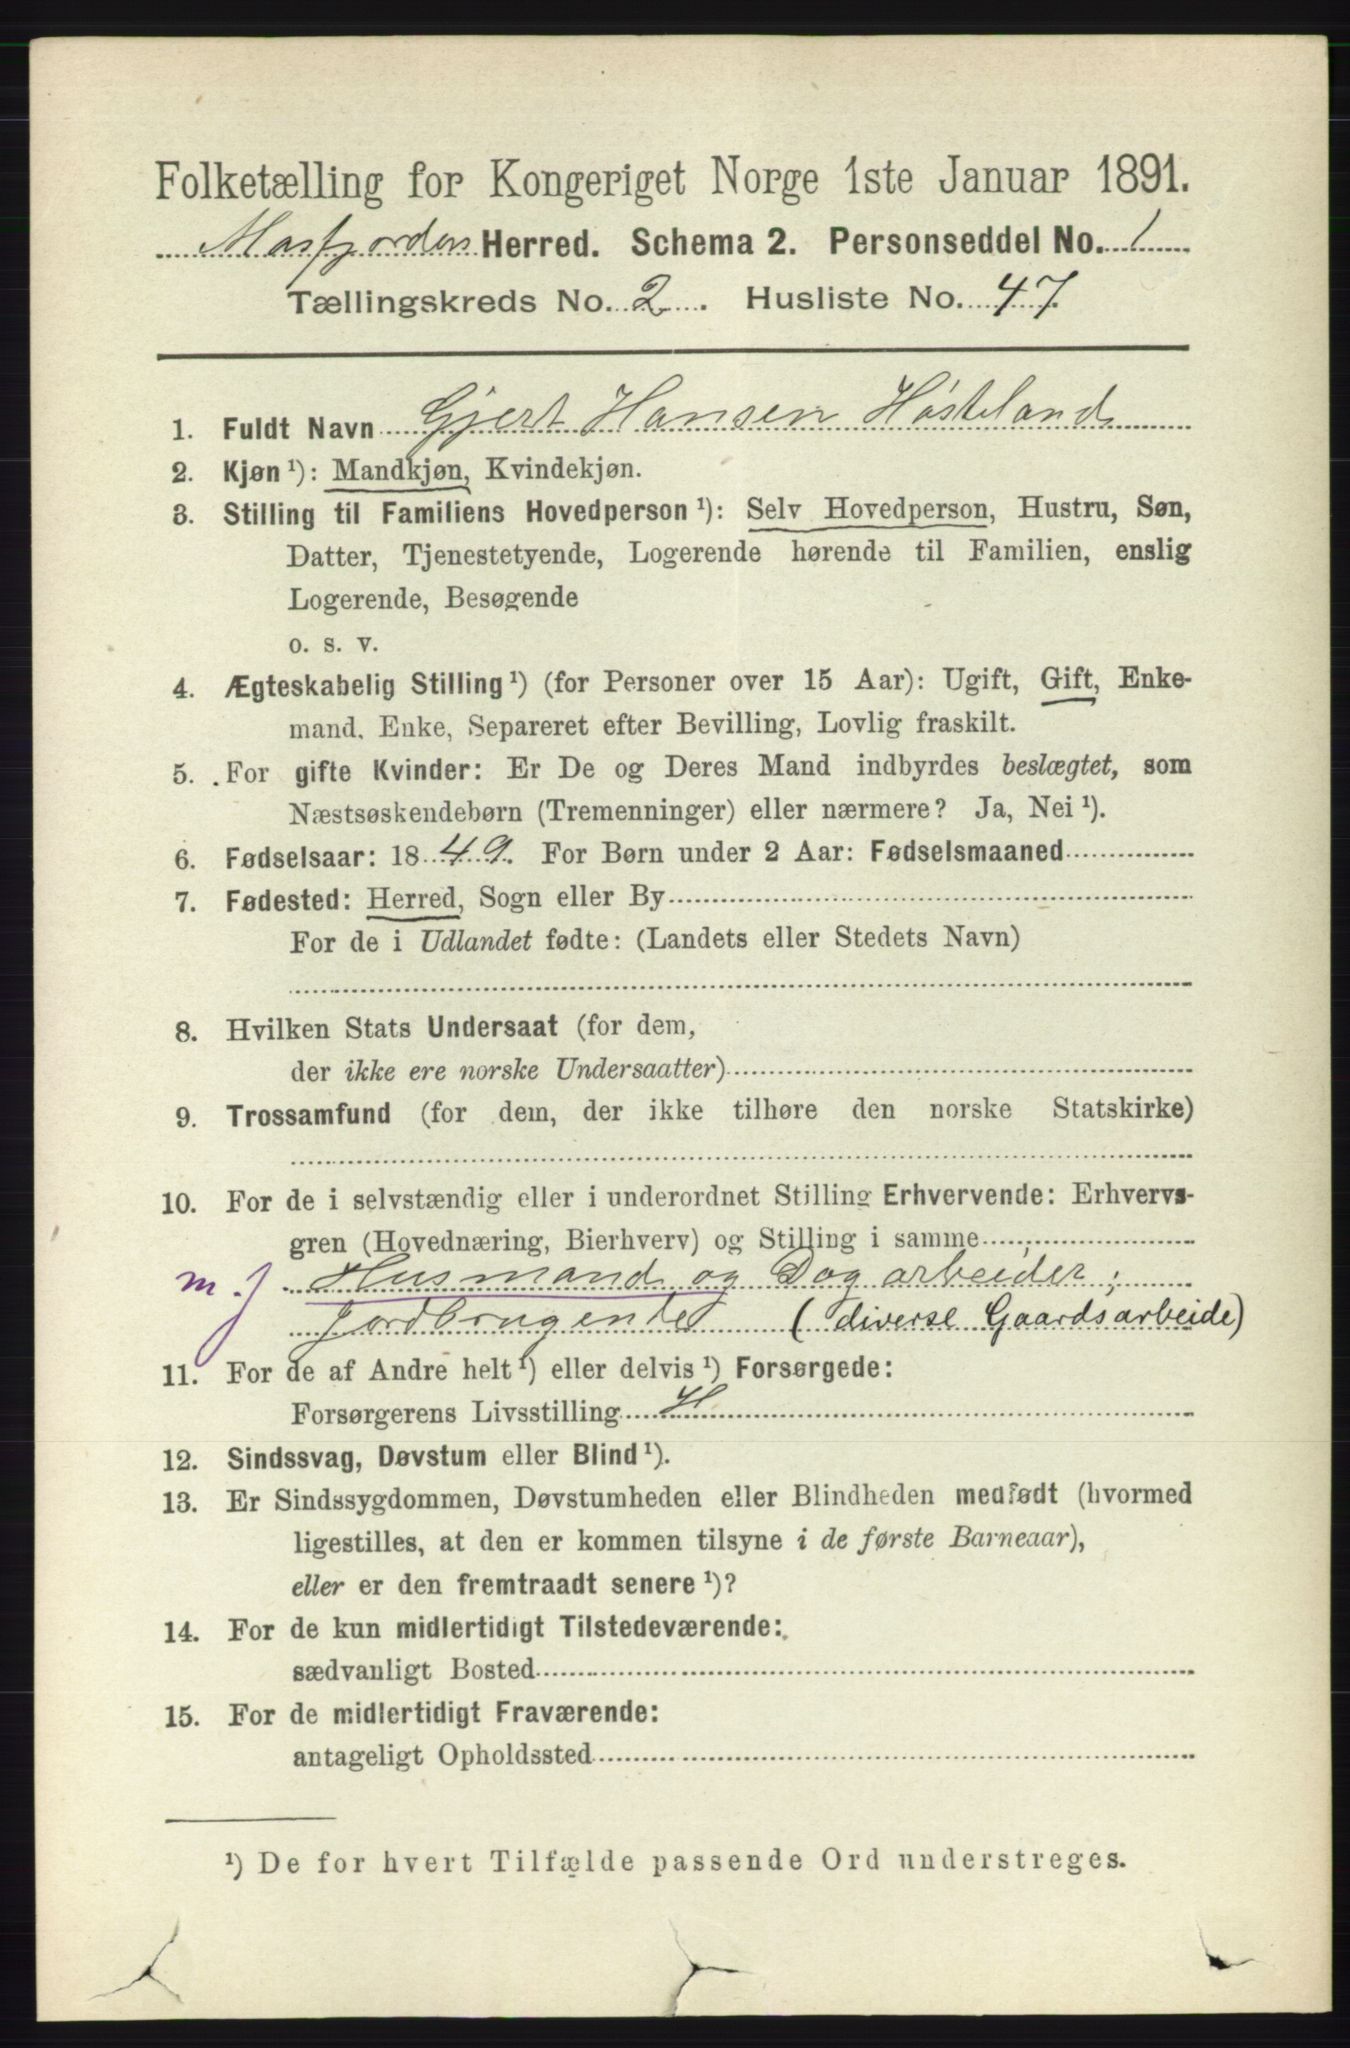 Folketælling for Kongeriget Norge 1ste Januar 1891.
Masfjordens Herred. Schema 2. Personseddel No. 1
Tællingskreds No. 2. Husliste No. 47.
1. Fuldt Navn Gjert Hansen Høsteland
2. Kjøn ¹): Mandkjøn, Kvindekjøn.
3. Stilling til Familiens Hovedperson ¹): Selv Hovedperson, Hustru, Søn,
Datter, Tjenestetyende, Logerende hørende til Familien, enslig
Logerende, Besøgende
o. s. v.
4. Ægteskabelig Stilling ¹) (for Personer over 15 Aar): Ugift, Gift, Enke-
mand, Enke, Separeret efter Bevilling, Lovlig fraskilt.
5. For gifte Kvinder: Er De og Deres Mand indbyrdes beslægtet, som
Næstsøskendebørn (Tremenninger) eller nærmere? Ja, Nei ¹).
6. Fødselsaar: 1849. For Børn under 2 Aar: Fødselsmaaned
7. Fødested: Herred, Sogn eller By
For de i Udlandet fødte: (Landets eller Stedets Navn)
8. Hvilken Stats Undersaat (for dem,
der ikke ere norske Undersaatter)
9. Trossamfund (for dem, der ikke tilhøre den norske Statskirke)
10. For de i selvstændig eller i underordnet Stilling Erhvervende: Erhvervs-
gren (Hovednæring, Bierhverv) og Stilling i samme
m. j. Husmand og Dagarbeider;
Jordbrugende (diverse Gaardsarbeide)
11. For de af Andre helt ¹) eller delvis ¹) Forsørgede:
Forsørgerens Livsstilling H
12. Sindssvag, Døvstum eller Blind ¹).
13. Er Sindssygdommen, Døvstumheden eller Blindheden medfødt (hvormed
ligestilles, at den er kommen tilsyne i de første Barneaar),
eller er den fremtraadt senere ¹)?
14. For de kun midlertidigt Tilstedeværende:
sædvanligt Bosted
15. For de midlertidigt Fraværende:
antageligt Opholdssted
¹) De for hvert Tilfælde passende Ord understreges.